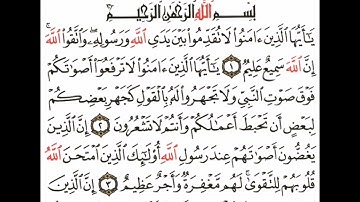 بِسْمِ اللَّهِ الرَّحْمَٰنِ الرَّحِيمِ
يَٰٓأَيُّهَا الَّذِينَ ءَامَنُوا لَا تُقَدِّمُوا بَيْنَ يَدَيِ اللَّهِ وَرَسُولِهِۦ وَاتَّقُوا اللَّهَ
إِنَّ اللَّهَ سَمِيعٌ عَلِيمٌ ١ يَٰٓأَيُّهَا الَّذِينَ ءَامَنُوا لَا تَرْفَعُوٓا أَصْوَٰتَكُمْ
فَوْقَ صَوْتِ النَّبِيِّ وَلَا تَجْهَرُوا لَهُۥ بِالْقَوْلِ كَجَهْرِ بَعْضِكُمْ
لِبَعْضٍ أَن تَحْبَطَ أَعْمَٰلُكُمْ وَأَنتُمْ لَا تَشْعُرُونَ ٢ إِنَّ الَّذِينَ
يَغُضُّونَ أَصْوَٰتَهُمْ عِندَ رَسُولِ اللَّهِ أُو۟لَٰٓئِكَ الَّذِينَ امْتَحَنَ اللَّهُ
قُلُوبَهُمْ لِلتَّقْوَىٰ لَهُم مَّغْفِرَةٌ وَأَجْرٌ عَظِيمٌ ٣ إِنَّ الَّذِينَ